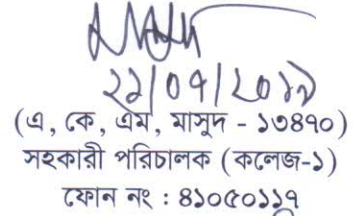 (এ, কে, এম, মাসুদ - ১৩৪৭০)
সহকারী পরিচালক (কলেজ-১)
ফোন নং : ৪১০৫০১১৭